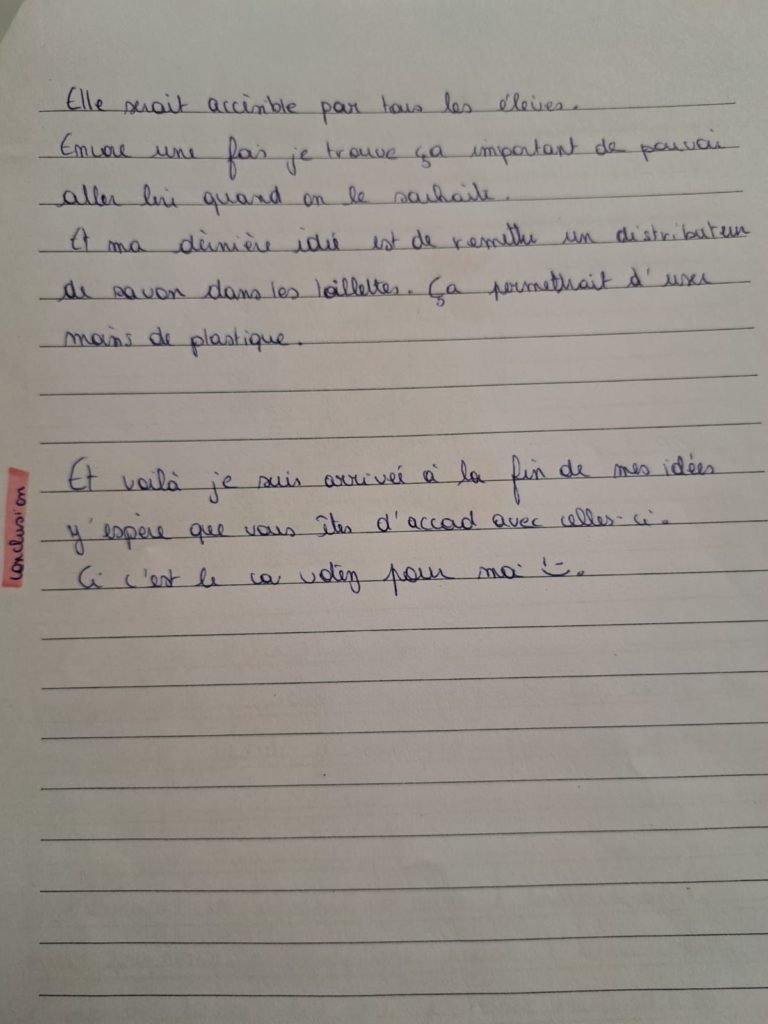 Elle serait accissible par tous les éleives.
Encore une fois je trouve ça important de pouvoir
aller lire quand on le souhaite.
Et ma dèrnière idée est de remettre un distributeur
de savon dans les toillettes. Ça permettrait d'user
moins de plastique.
Et voilà je suis arriveé à la fin de mes idées
y'espère que vous êtes d'accod avec celles-ci.
Ci c'est le ca votez pour moi :-).
conclusion